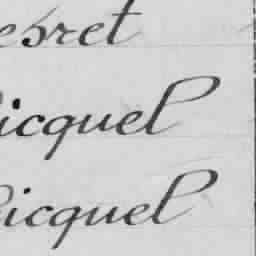 esret
icquel
icquel